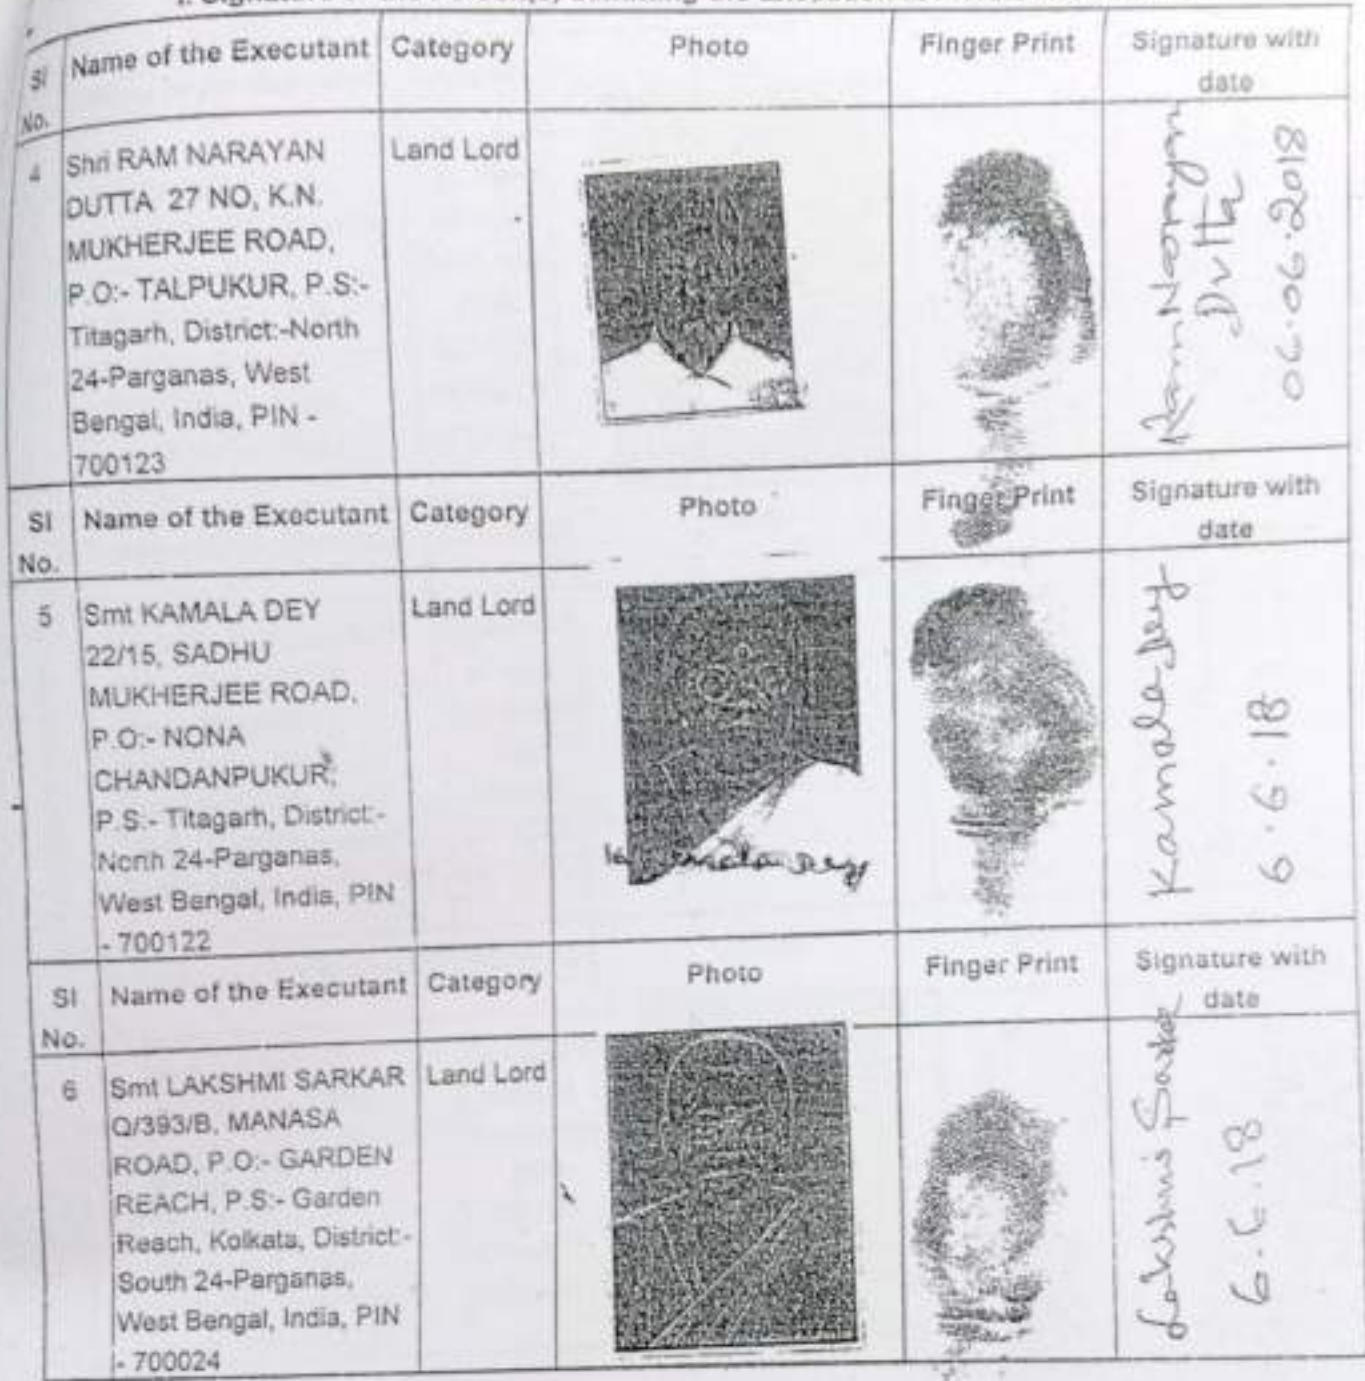 I. Signature of the Person(s) admitting the Execution
Sl No. Name of the Executant Category Photo Finger Print Signature with date
4 Shri RAM NARAYAN Land Lord
DUTTA 27 NO, K.N.
MUKHERJEE ROAD,
P.O:- TALPUKUR, P.S:-
Titagarh, District:-North
24-Parganas, West
Bengal, India, PIN -
700123
Ram Narayan
Dutta
06.06.2018
Sl No. Name of the Executant Category Photo Finger Print Signature with date
5 Smt KAMALA DEY Land Lord
22/15, SADHU
MUKHERJEE ROAD,
P.O:- NONA
CHANDANPUKUR,
P.S:- Titagarh, District:-
North 24-Parganas,
West Bengal, India, PIN
- 700122
Kamala Dey
Kamala Dey
6.6.18
Sl No. Name of the Executant Category Photo Finger Print Signature with date
6 Smt LAKSHMI SARKAR Land Lord
Q/393/B, MANASA
ROAD, P.O:- GARDEN
REACH, P.S:- Garden
Reach, Kolkata, District:-
South 24-Parganas,
West Bengal, India, PIN
- 700024
Lakshmi Sarkar
6.6.18